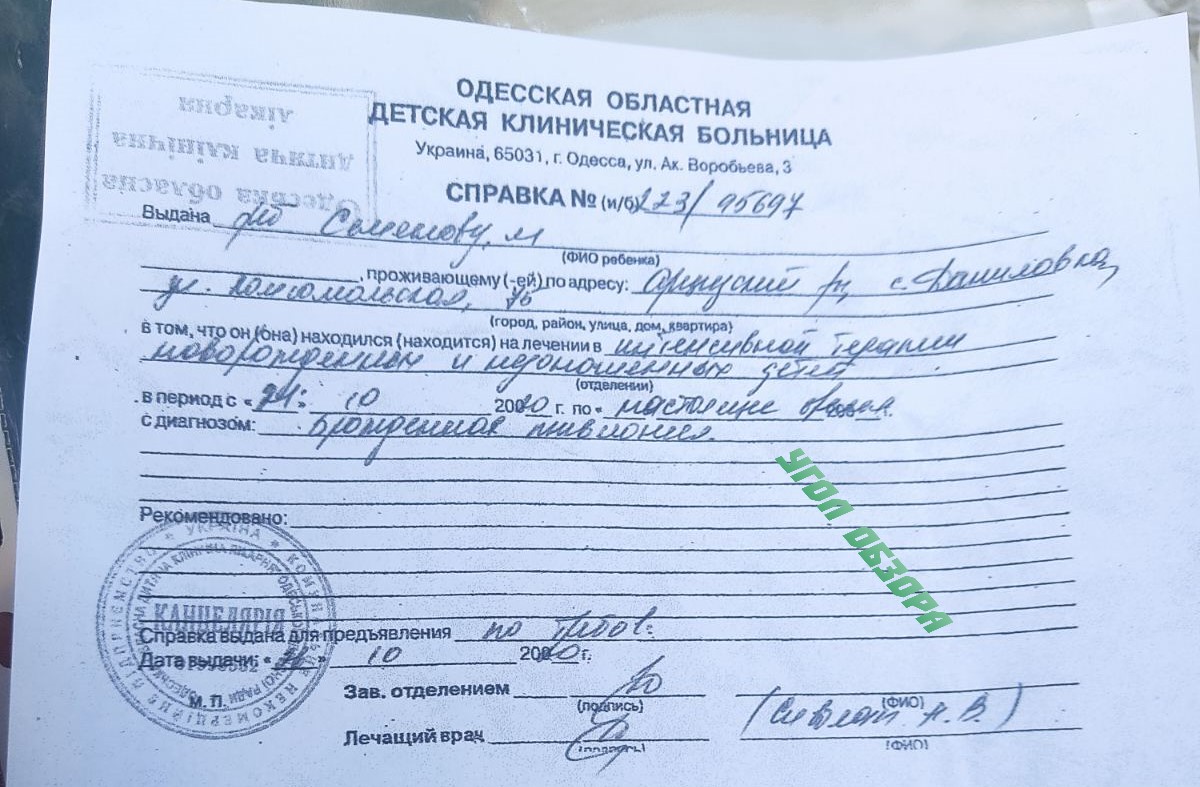 ОДЕССКАЯ ОБЛАСТНАЯ
ДЕТСКАЯ КЛИНИЧЕСКАЯ БОЛЬНИЦА
Украина, 65031, г. Одесса, ул. Ак. Воробьева, 3
Одеська обласна
дитяча клінічна
лікарня
СПРАВКА № (и/б) 223/95697
Выдана Семенову, м
(ФИО ребенка)
, проживающему (-ей) по адресу: Арцизский рн, с. Даниловка,
ул. Комсомольская,
(город, район, улица, дом, квартира)
в том, что он (она) находился (находится) на лечении в интенсивной терапии
новорожденных и недоношенных детей
(отделении)
в период с « 24: 10 2020 г. по « настоящее время
с диагнозом: Врожденная пневмония.
Рекомендовано:
УГОЛ ОБЗОРА
УКРАЇНА * КОМУНАЛЬНЕ НЕКОМЕРЦІЙНЕ ПІДПРИЄМСТВО
КАНЦЕЛЯРІЯ
Справка выдана для предъявления по требов.
Дата выдачи: « » 10 2020 г.
М. П.
Зав. отделением
(подпись) (ФИО)
Лечащий врач А. В.)
(подпись) (ФИО)